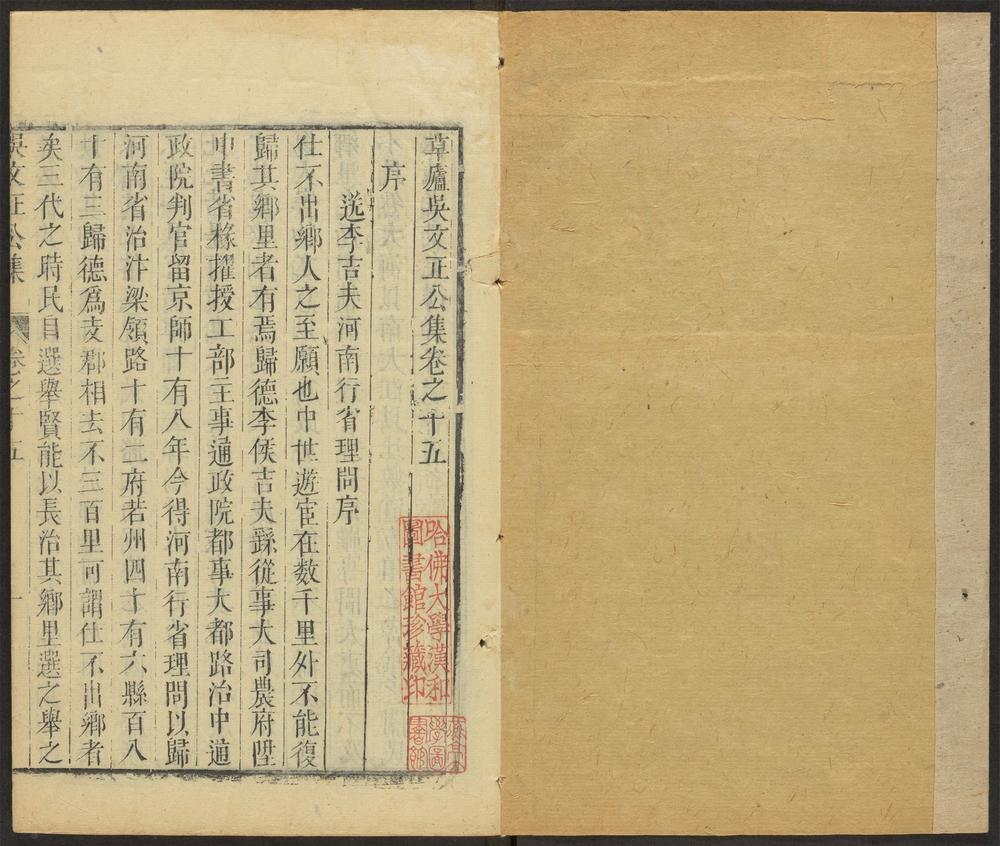 草廬吳文正公集卷之十五
序
送李吉夫河南行省理問序
仕不出鄉人之至願也中世遊宦在数千里外不能復
歸其鄉里者有焉歸德李侯吉夫繇從事大司農府陞
中書省椽擢授工部主事通政院都事大都路治中通
政院判官留京師十有八年今得河南行省理問以歸
河南省治汴梁領路十有二府若州四十有六縣百八
十有三歸德爲支郡相去不三百里可謂仕不出鄉者
矣三代之時民自選舉賢能以長治其鄉里選之舉之
吳文正公集
卷之十五
一
哈佛大學漢和
圖書館珍藏印
學圖
書館